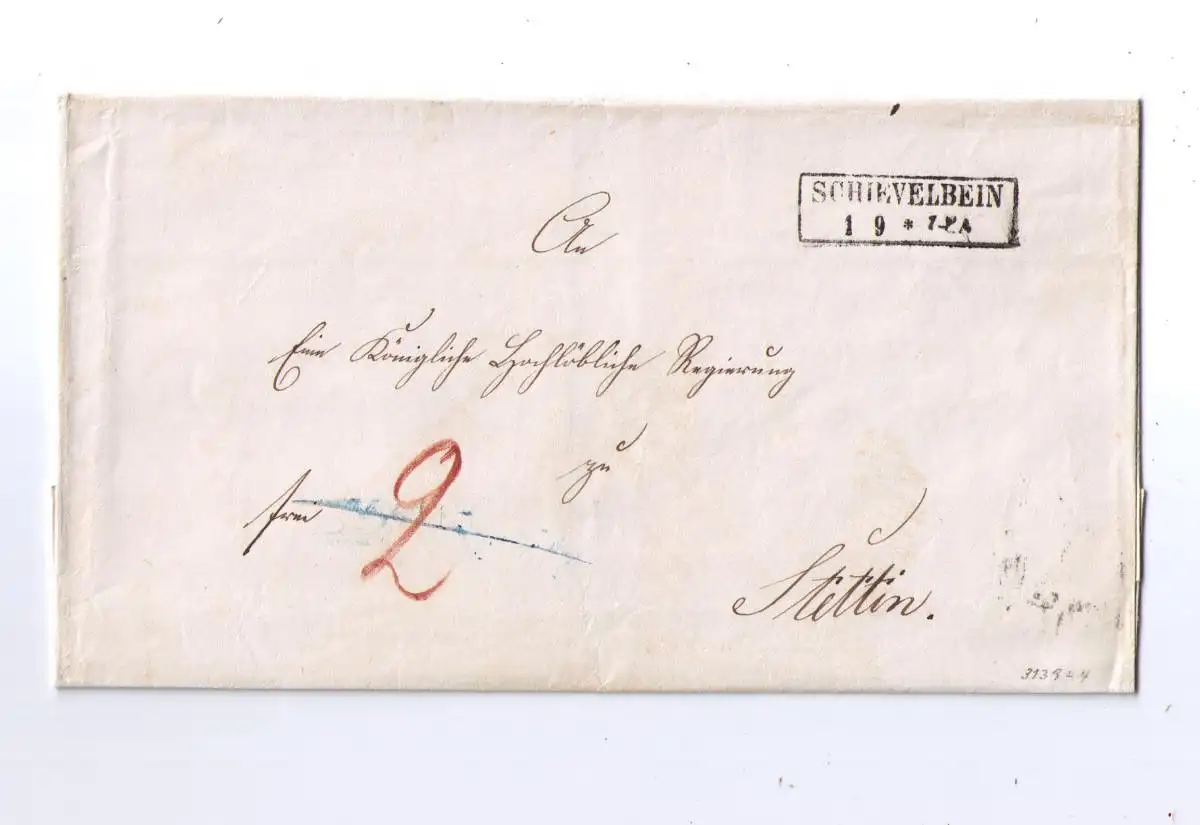 SCHIEVELBEIN
1 9 *
An
Eine Königliche Hochlöbliche Regierung
zu
frei
2
Stettin.